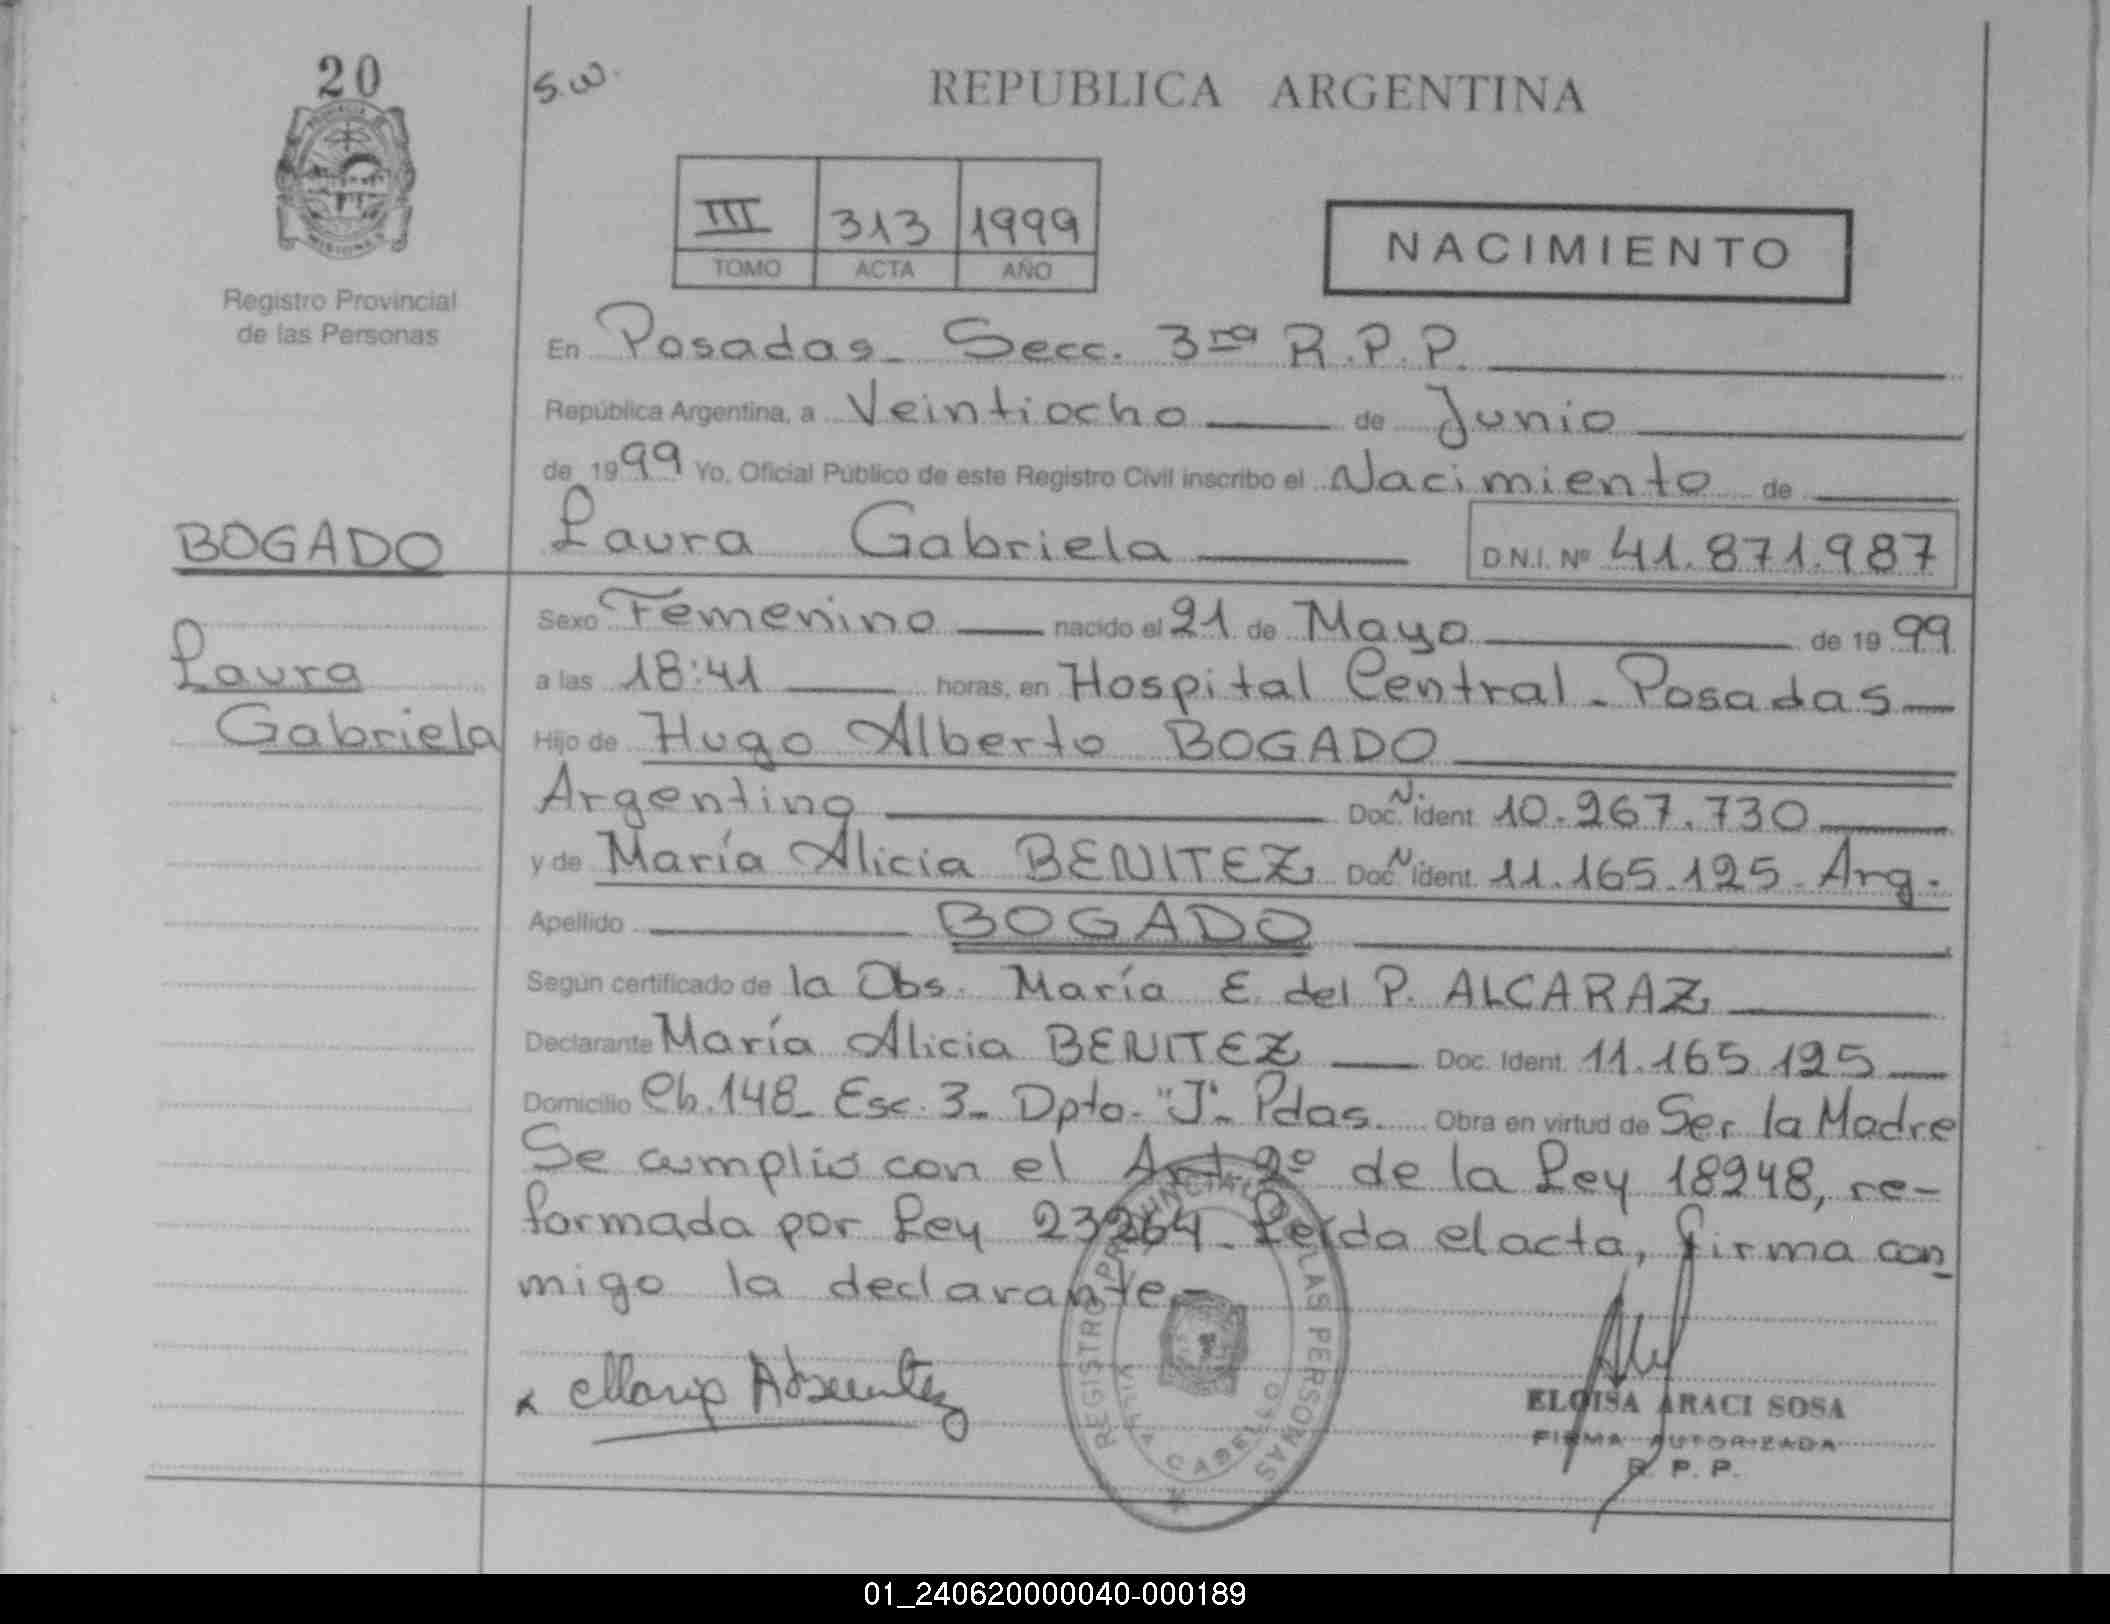 20
Registro Provincial
de las Personas
S.W.
REPUBLICA ARGENTINA
III 313 1999
TOMO ACTA AÑO
NACIMIENTO
En Posadas - Secc. 3ra R.P.P.
República Argentina, a Veintiocho de Junio
de 1999 Yo, Oficial Público de este Registro Civil inscribo el Nacimiento de
Laura Gabriela D.N.I. Nº 41.871.987
BOGADO
Laura
Gabriela
Sexo Femenino nacido el 21 de Mayo de 1999
a las 18:41 horas, en Hospital Central - Posadas
Hijo de Hugo Alberto BOGADO
Argentino Doc. N. Ident. 10.267.730
y de María Alicia BENITEZ Doc. N Ident. 11.165.125 - Arg.
Apellido BOGADO
Según certificado de la Obs. María E. del P. ALCARAZ
Declarante María Alicia BENITEZ Doc. Ident. 11.165.125
Domicilio Eb. 148 - Esc. 3 - Dpto. "J" - Pdas. Obra en virtud de Ser la Madre
Se cumplió con el Art. 2º de la Ley 18248, re-
formada por Ley 23264 - Leída el acta, firma con-
migo la declarante.-
REGISTRO PROVINCIAL DE LAS PERSONAS
ELOISA ARACI SOSA
FIRMA AUTORIZADA
R. P. P.
01_240620000040-000189